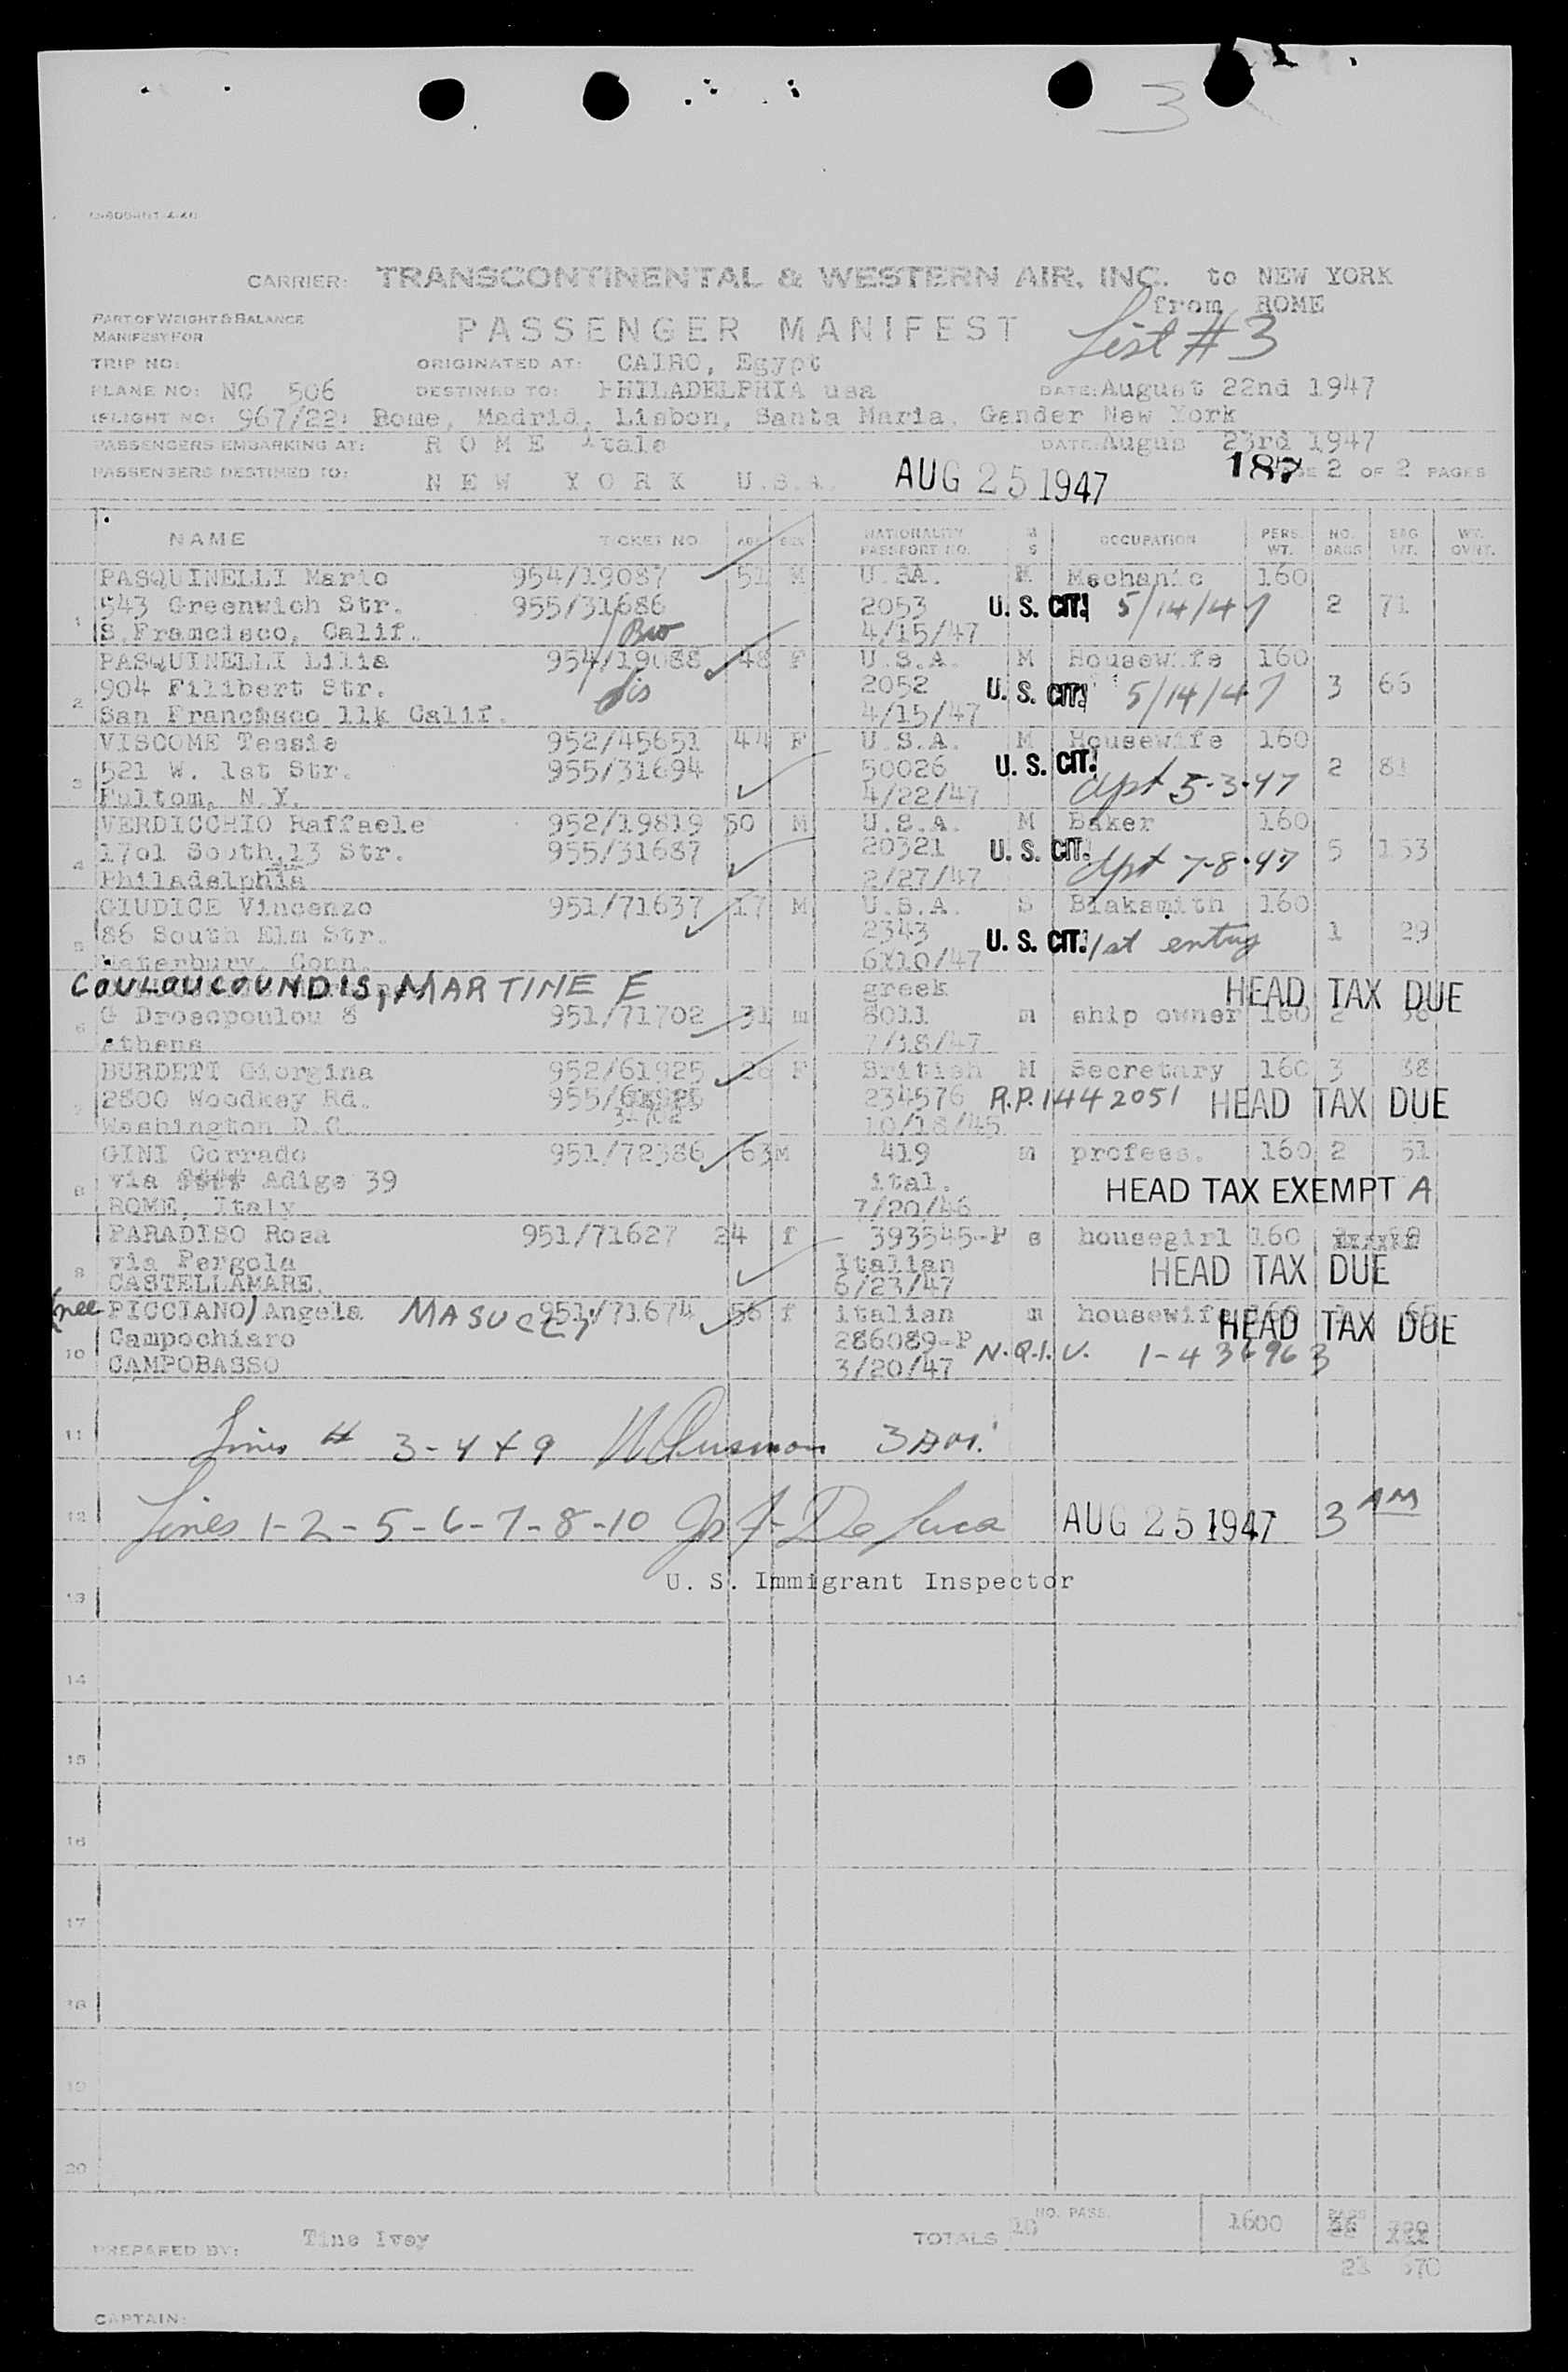 3
CARRIER: TRANSCONTINENTAL & WESTERN AIR, INC. to NEW YORK
from ROME
PART OF WEIGHT & BALANCE
MANIFEST FOR
PASSENGER MANIFEST List # 3
TRIP NO: ORIGINATED AT: CAIRO, Egypt
PLANE NO: NC 506 DESTINED TO: PHILADELPHIA usa DATE: August 22nd 1947
FLIGHT NO: 967/22: Rome, Madrid, Lisbon, Santa Maria, Gander New York
PASSENGERS EMBARKING AT: R O M E Itale DATE: Augus 23rd 1947
PASSENGERS DESTINED TO: N E W Y O R K U.S.A. AUG 25 1947 187 2 OF 2 PAGES
NAME TICKET NO AGE SEX NATIONALITY PASSPORT NO. M S OCCUPATION PERS. WT. NO. BAGS BAG WT. WT. OVNT.
PASQUINELLI Mario 954/19087 51 M U.SA. M Mechanic 160
1 543 Greenwich Str. 955/31686 2053 U. S. CIT. 5/14/47 2 71
S.Framcisco, Calif. 4/15/47
PASQUINELLI Lilia 954/19088 48 F U.S.A. M Housewife 160
2 904 Filibert Str. 2052 U. S. CIT. 5/14/47 3 66
San Francisco 11k Calif. 4/15/47
VISCOME Tessie 952/45651 44 F U.S.A. M Housewife 160
3 521 W. 1st Str. 955/31694 50026 U. S. CIT. 2 81
Fultom, N.Y. 4/22/47 dpt 5-3-47
VERDICCHIO Raffaele 952/19819 50 M U.S.A. M Baker 160
4 17ol South,13 Str. 955/31687 20321 U. S. CIT. dpt 7-8-47 5 153
Philadelphia 2/27/47
GIUDICE Vincenzo 951/71637 17 M U.S.A. S Blaksmith 160
5 86 South Elm Str. 2343 U. S. CIT. 1st entry 1 29
Waterbury, Conn. 6/10/47
COULOUCOUNDIS, MARTINE E greek HEAD TAX DUE
6 G Drosopoulou 8 951/71702 31 m 8011 m ship owner 160 2
Athens 7/18/47
BURDETT Giorgina 952/61925 28 F British M Secretary 160 3 38
7 2800 Woodkey Rd. 234576 R.P.1442051 HEAD TAX DUE
Washington D.C. 10/18/45
GINI Corrado 951/72386 63 M 419 m profess. 160 2 51
8 via Adige 39 ital. HEAD TAX EXEMPT A
ROME, Italy 7/20/46
PARADISO Rosa 951/71627 24 f 393545-P s housegirl 160
9 via Pergola Italian HEAD TAX DUE
CASTELLAMARE. 6/23/47
(nee PICCIANO) Angela MASUCCI 951/71674 56 f italian m housewife HEAD TAX DUE
Campochiaro 286089-P N.Q.I.V. 1-436963
10 CAMPOBASSO 3/20/47
11 Lines # 3-4 & 9
12 Lines 1-2-5-6-7-8-10 De Luca AUG 25 1947 3 AM
U. S. Immigrant Inspector
13
14
15
16
17
18
19
20
PREPARED BY: Tine Ivey TOTALS 10 NO. PASS. 1600
CAPTAIN: